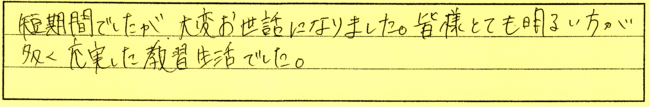 短期間でしたが 大変お世話になりました。皆様とても明るい方が
多く充実した教習生活でした。